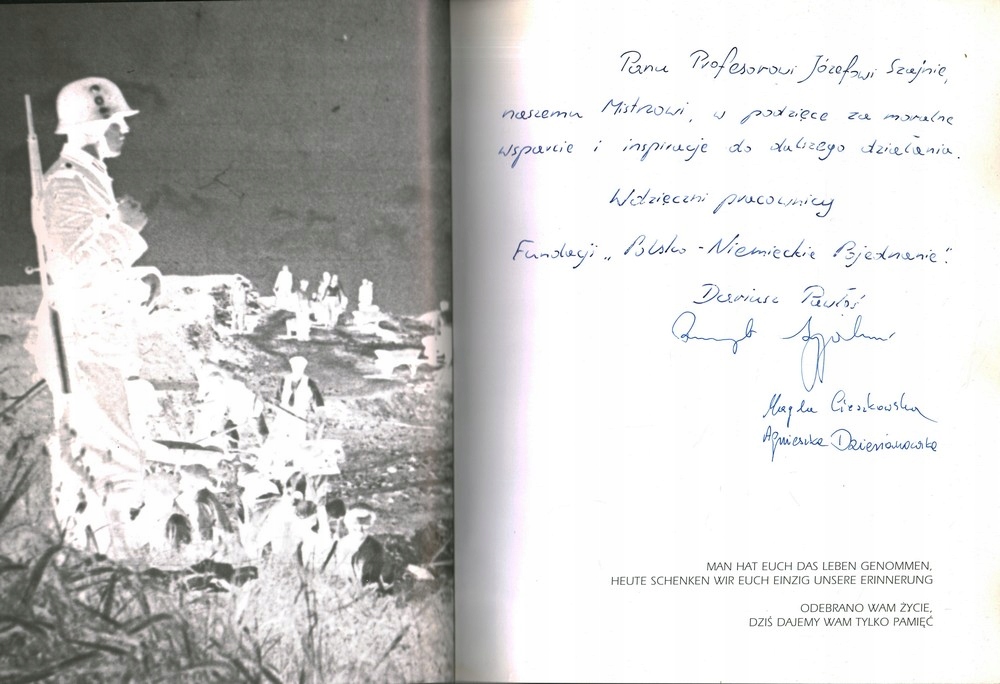 Panu Profesorowi Józefowi Szajnie,
naszemu Mistrzowi, w podzięce za moralne
wsparcie i inspiracje do dalszego działania.
Wdzięczni pracownicy
Fundacji „Polsko-Niemieckie Pojednanie".
Dariusz Pawłoś
Magda Cieszkowska
Agnieszka Dzierżanowska
MAN HAT EUCH DAS LEBEN GENOMMEN,
HEUTE SCHENKEN WIR EUCH EINZIG UNSERE ERINNERUNG
ODEBRANO WAM ŻYCIE,
DZIŚ DAJEMY WAM TYLKO PAMIĘĆ